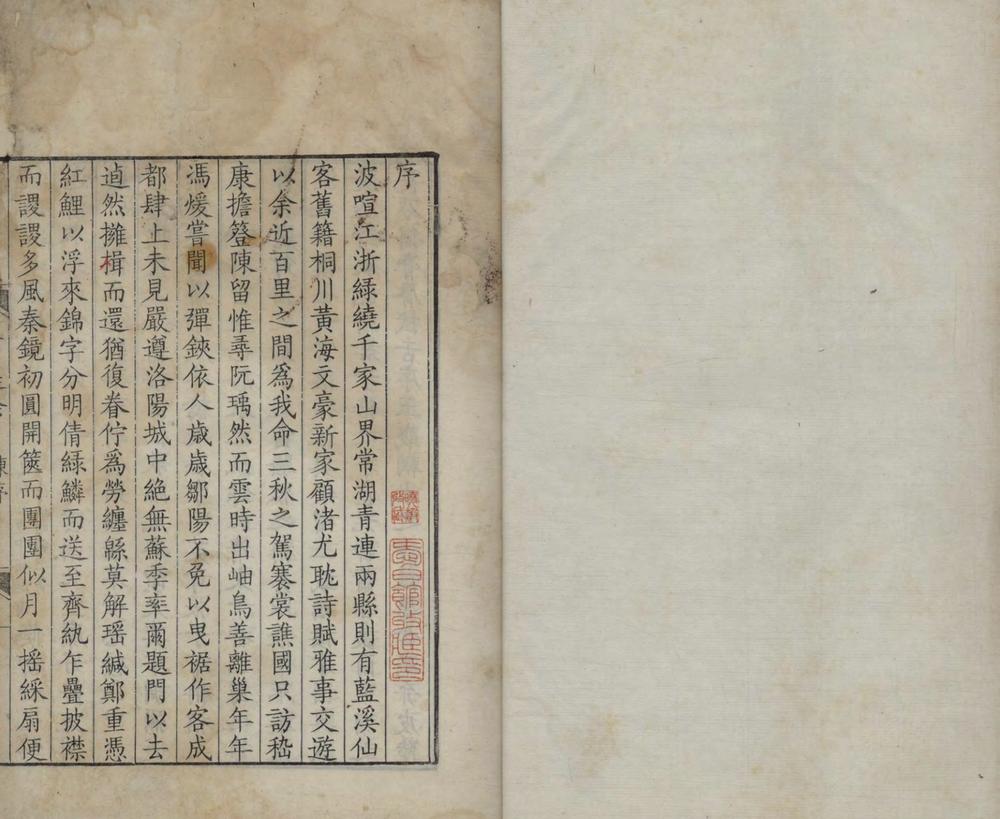 序
波喧江浙緑繞千家山界常湖青連兩縣則有藍溪仙
客舊籍桐川黃海文豪新家顧渚尤耽詩賦雅事交遊
以余近百里之間爲我命三秋之駕褰裳譙國只訪嵇
康擔簦陳留惟尋阮瑀然而雲時出岫鳥善離巢年年
馮煖嘗聞以彈鋏依人歲歲鄒陽不免以曳裾作客成
都肆上未見嚴遵洛陽城中絶無蘇季率爾題門以去
逌然擁楫而還猶復眷佇爲勞纏緜莫解瑶緘鄭重憑
紅鯉以浮來錦字分明倩緑鱗而送至齊紈乍疊披襟
而謖謖多風秦鏡初圓開篋而團團似月一摇綵扇便